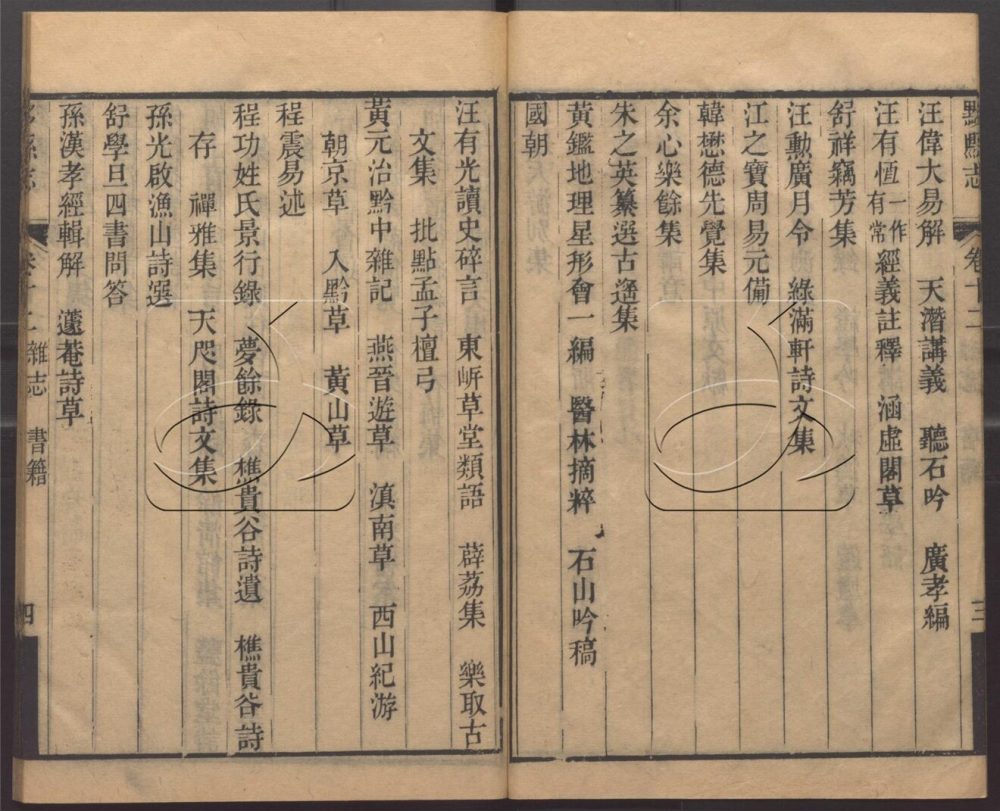 黟縣志 卷十二 三
汪偉大易解 天潛講義 聽石吟 廣孝編
汪有恆一作有常經義註釋 涵虛閣草
舒祥竊芳集
汪勳廣月令 綠滿軒詩文集
江之寶周易元備
韓懋德先覺集
余心樂餘集
朱之英纂選古選集
黃鑑地理星形會一編 醫林摘粹 石山吟稿
國朝
汪有光讀史碎言 東岍草堂類語 薜荔集 樂取古
文集 批點孟子檀弓
黃元治黔中雜記 燕晉遊草 滇南草 西山紀游
朝京草 入黔草 黃山草
程震易述
程功姓氏景行錄 夢餘錄 樵貴谷詩遺 樵貴谷詩
存 禪雅集 天咫閣詩文集
孫光啟漁山詩選
舒學旦四書問答
孫漢孝經輯解 蘧菴詩草
縣志 卷十二雜志 書籍 四